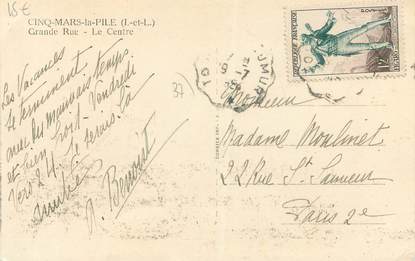 15€
CINQ-MARS-la-PILE (I.-et-L.)
Grande Rue - Le Centre
37
Les Vacances
se terminent
avec du mauvais temps
et bien tôt. Vendredi
vers 24 je serais là
amitiés
A. Benoist
REPUBLIQUE FRANÇAISE
12F
Monsieur
Madame Moulinet
22 Rue St Sauveur
Paris 2e